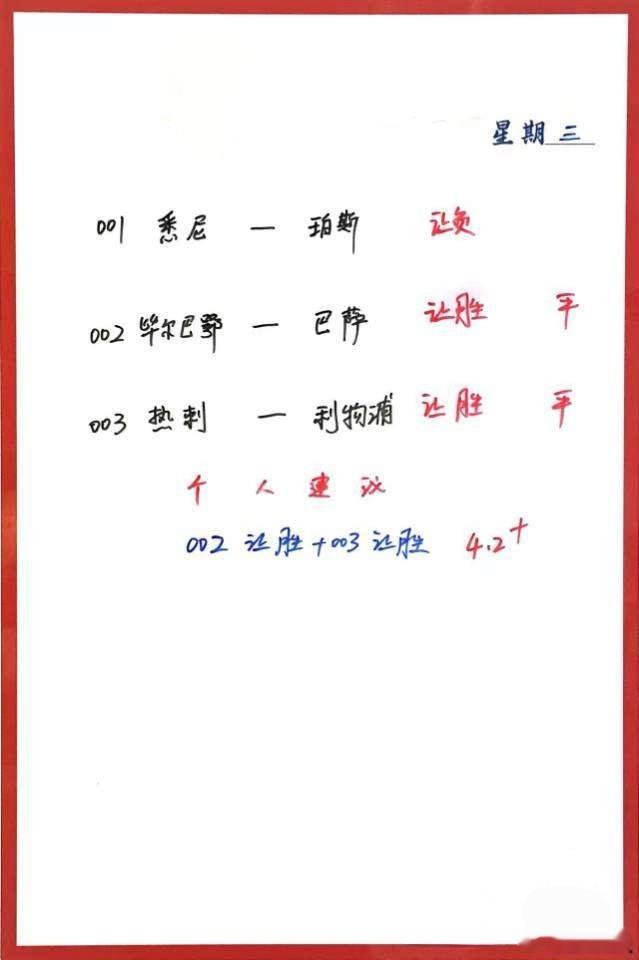 星期三
001 悉尼 — 珀斯 让负
002 毕尔巴鄂 — 巴萨 让胜 平
003 热刺 — 利物浦 让胜 平
个人建议
002 让胜+003 让胜 4.2+